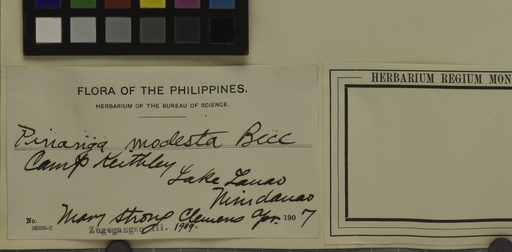 FLORA OF THE PHILIPPINES.
HERBARIUM OF THE BUREAU OF SCIENCE.
Pinanga modesta Becc
Camp Keithley
Lake Lanao
Mindanao
No. Mary Strong Clemens Apr. 1907
36966-2 Zugegangen 1909.
HERBARIUM REGIUM MON